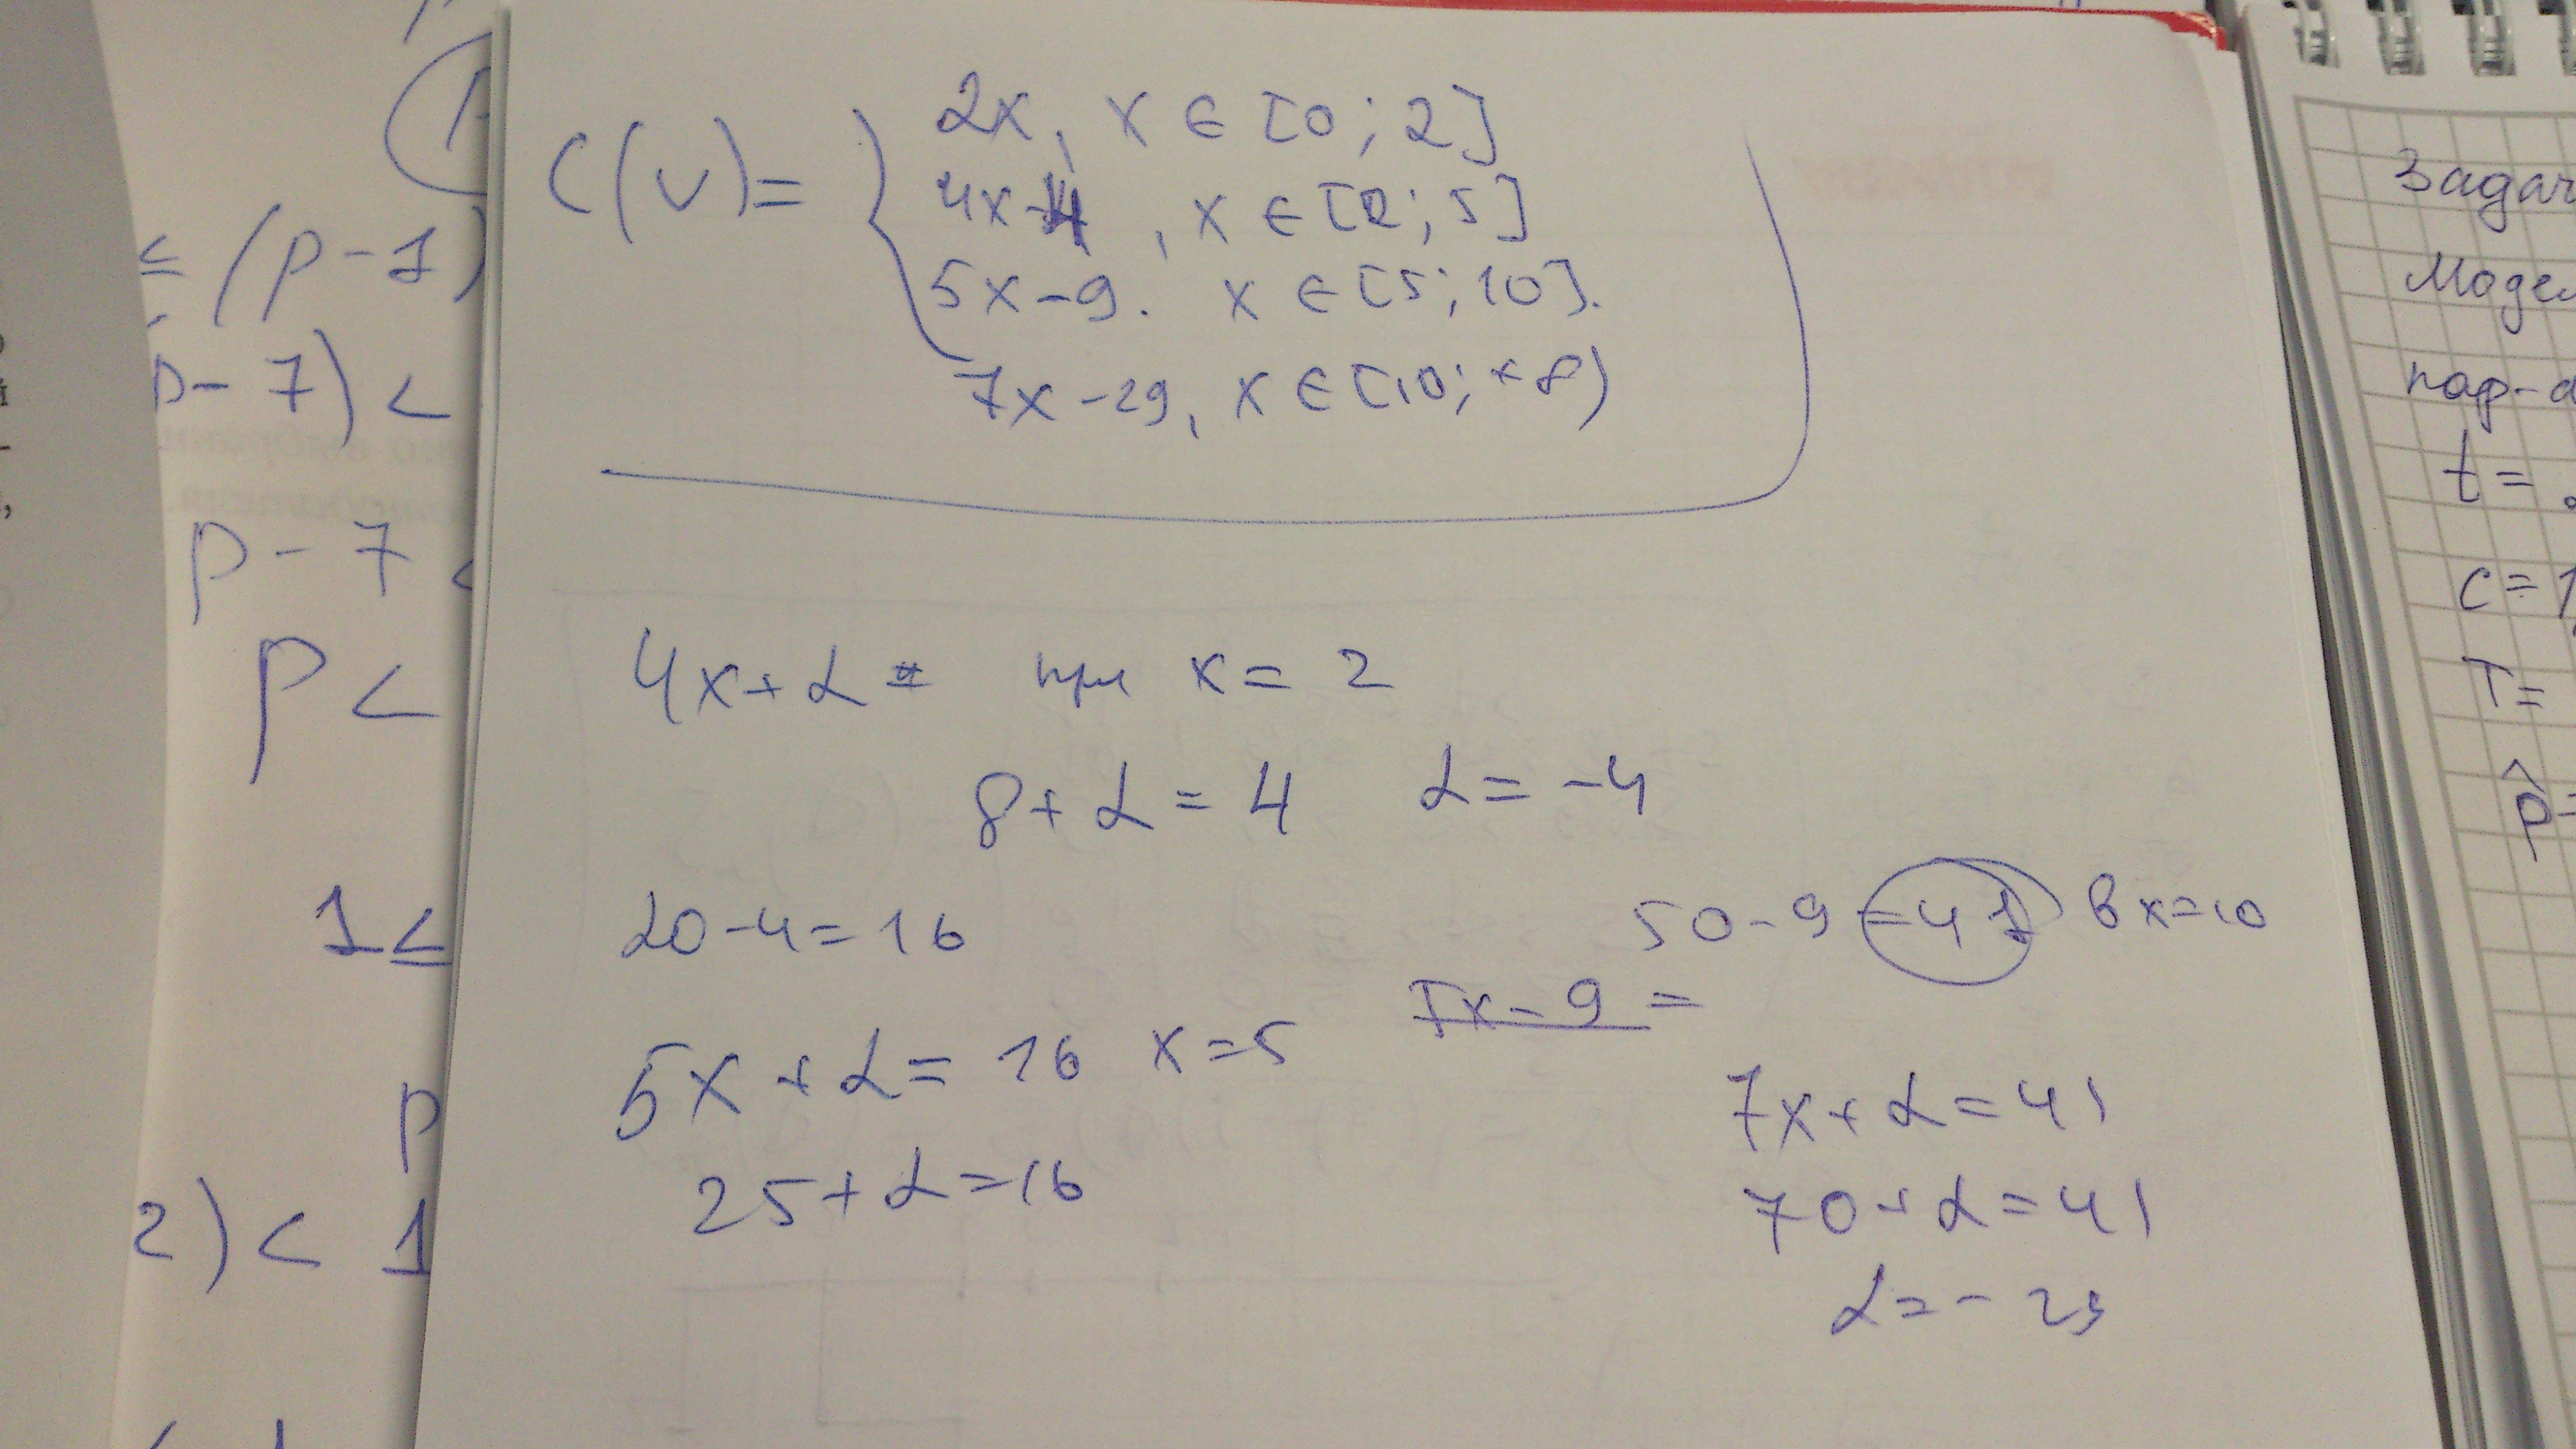 ≤ (p-1)
p-7) <
p-7 <
p <
1 ≤
p
2) < 1
C(v)= { 2x, x ∈ [0; 2]
4x-4, x ∈ [2; 5]
5x-9. x ∈ [5; 10].
7x-29, x ∈ [10; +8)
4x+α = при x = 2
8+α = 4 α = -4
20-4=16
50-9=41 в x=10
5x-9 =
5x+α= 16 x=5
25+α=16
7x+α=41
70+α=41
α=-29
Задач
Модел
пар-
t=
c=1
T=
p̂-